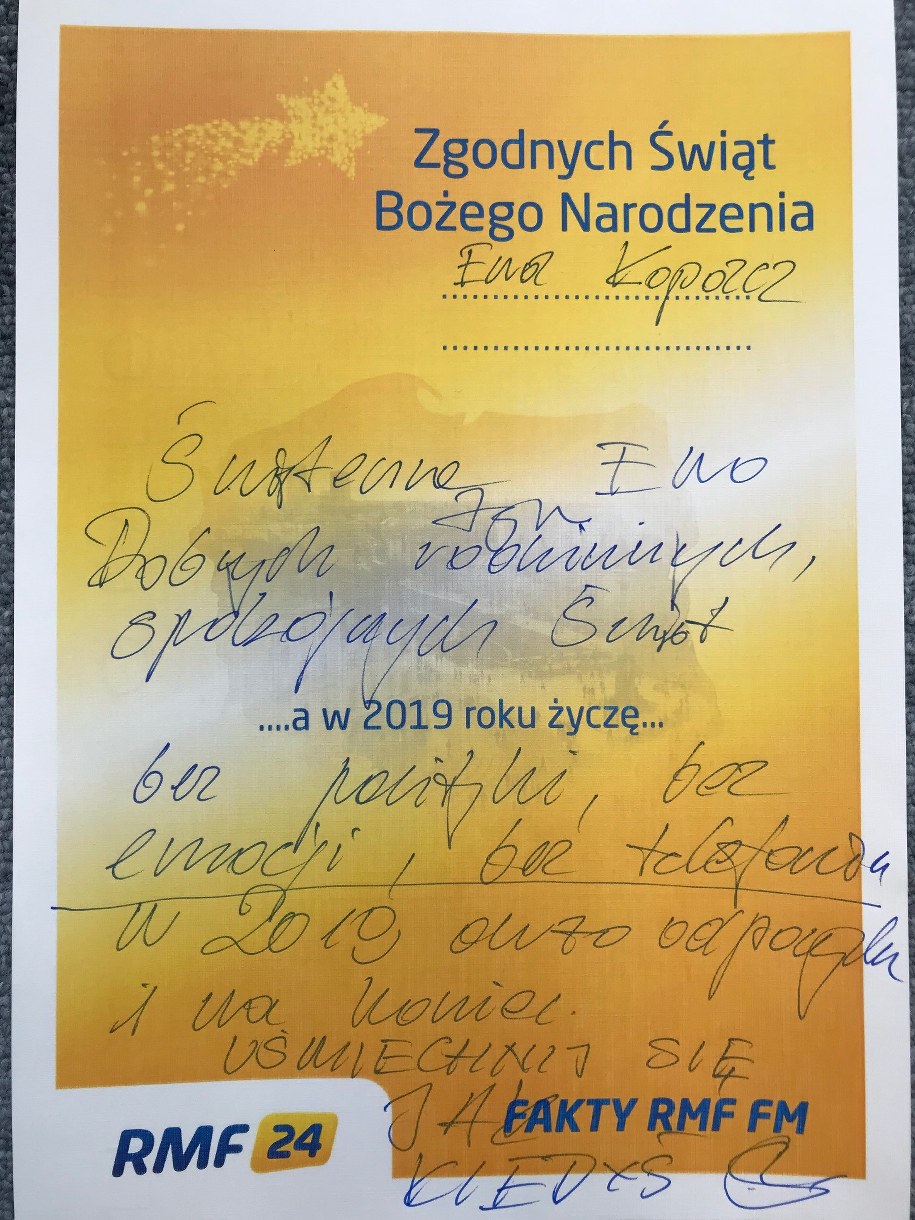 Zgodnych Świąt
Bożego Narodzenia
Ewa Kopacz
Świąteczne Ewo
Dobrych rodzinnych,
spokojnych Świąt
....a w 2019 roku życzę...
bez polityki, bez
emocji, bez telefonów
w 2019 dużo odpoczynku
i na koniec.
UŚMIECHNIJ SIĘ
JAK
FAKTY RMF FM
KIEDYŚ
RMF 24